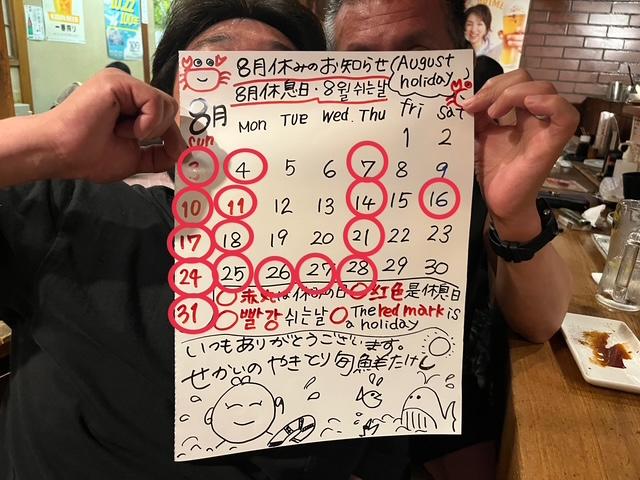 8月休みのお知らせ
(August
holiday)
8月休息日・8월 쉬는날
8月
sun Mon TUE Wed. Thu fri sat
1 2
3 4 5 6 7 8 9
10 11 12 13 14 15 16
17 18 19 20 21 22 23
24 25 26 27 28 29 30
31
○赤丸は休みの日 ○紅色是休息日
○빨강 쉬는날 ○The red mark is
a holiday
いつもありがとうございます。
せかいのやきとり旬鮮たけし
一番搾り